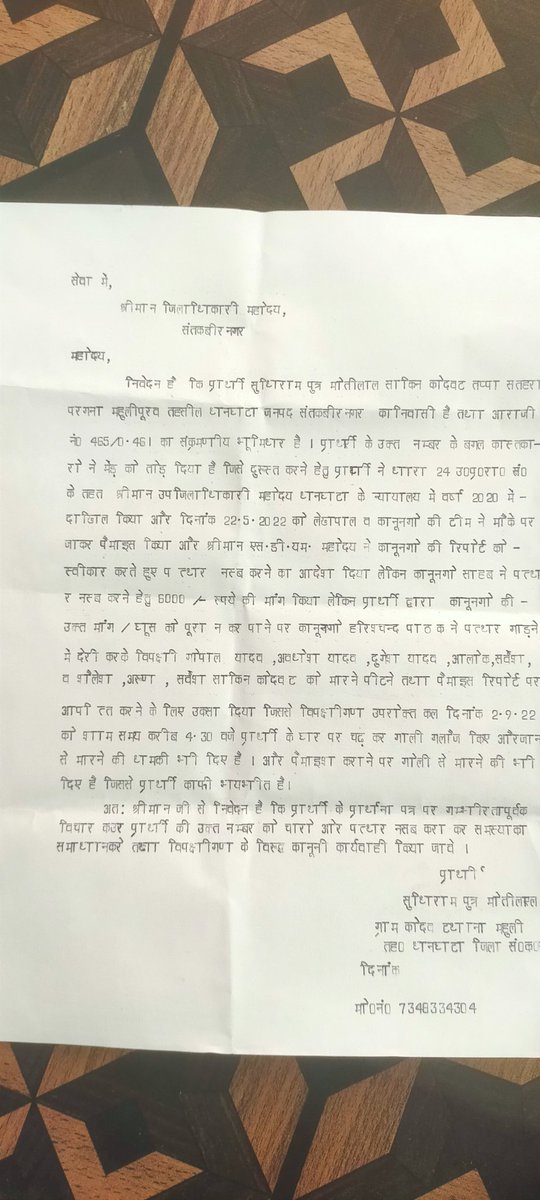 सेवा मे,
श्रीमान जिलाधिकारी महोदय,
संतकबीर नगर
महोदय,
निवेदन है कि प्रार्थी सुधिराम पुत्र मोतीलाल साकिन कोदवट तप्पा सतहरा
परगना महुलीपूरब तहसील धनघाटा जनपद संतकबीर नगर का निवासी है तथा आराजी
नं0 465/0.461 का संक्रमणीय भूमिधर है । प्रार्थी के उक्त नम्बर के बगल कास्तका-
रो ने मेंड़ को तोड़ दिया है जिसे दुरूस्त करने हेतु प्रार्थी ने धारा 24 उ0प्र0रा0 सं0
के तहत श्रीमान उपजिलाधिकारी महोदय धनघाटा के न्यायालय में वर्ष 2020 मे -
दाखिल किया और दिनांक 22.5.2022 को लेखपाल व कानूनगो की टीम ने मौके पर
जाकर पैमाइस किया और श्रीमान एस.डी.एम. महोदय ने कानूनगो की रिपोर्ट को -
स्वीकार करते हुए पत्थर नस्ब करने का आदेश दिया लेकिन कानूनगो साहब ने पत्थ
र नस्ब करने हेतु 6000 /- रूपये की मांग किया लेकिन प्रार्थी द्वारा कानूनगो की -
उक्त मांग / घूस को पूरा न कर पाने पर कानूनगो हरिश्चन्द पाठक ने पत्थर गाड़ने
मे देरी करके विपक्षी गोपाल यादव ,अवधेश यादव ,दुर्गेश यादव ,आलोक,सर्वेश,
व शैलेश ,अरूण , सर्वेश साकिन कोदवट को मारने पीटने तथा पैमाइस रिपोर्ट पर
आपत्ति करने के लिए उकसा दिया जिससे विपक्षीगण उपरोक्त कल दिनांक 2.9.22
को शाम समय करीब 4.30 बजे प्रार्थी के घर पर चढ़ कर गाली गलौज किए औरजान
से मारने की धमकी भी दिए है । और पैमाइश कराने पर गोली से मारने की भी
दिए है जिससे प्रार्थी काफी भयभीत है।
अत: श्रीमान जी से निवेदन है कि प्रार्थी के प्रार्थना पत्र पर गम्भीरतापूर्वक
विचार कर प्रार्थी की उक्त नम्बर को चारो ओर पत्थर नसब करा कर समस्याका
समाधानकरे तथा विपक्षीगण के विरूद्ध कानूनी कार्यवाही किया जावे ।
प्रार्थी
सुधिराम पुत्र मोतीलाल
ग्राम कोदवट थाना महुली
तह0 धनघाटा जिला सं0क0
दिनांक
मो0नं0 7348334304